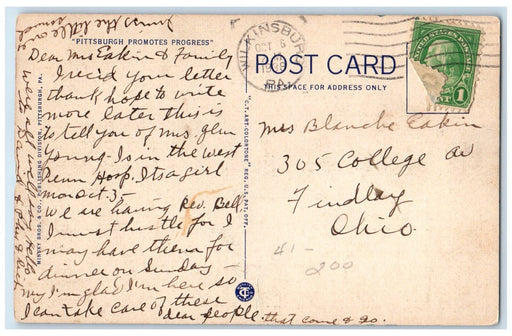 "PITTSBURGH PROMOTES PROGRESS"
Dear Mrs Eakin & Family
I rec'd your letter
thank hope to write
more later this is
to tell you of Mrs. Glen
Young - Is in the West
Penn Hosp, Its a girl
mon Oct 3-
We are having Rev. Bell.
I must hustle for I
may have them for
dinner on Sunday -
My I'm glad I'm here so
I can take care of these
dear people. that come & go.
MINSKY BROS. & CO., PUBLISHING DIVISION, PITTSBURGH, PA.
"C.T. ART COLORTONE" REG. U.S. PAT. OFF.
WILKINSBURG
OCT 6
PA.
POST CARD
THIS SPACE FOR ADDRESS ONLY
1
Mrs Blanche Eakin
305 College Av
Findlay
Ohio.
41-
200